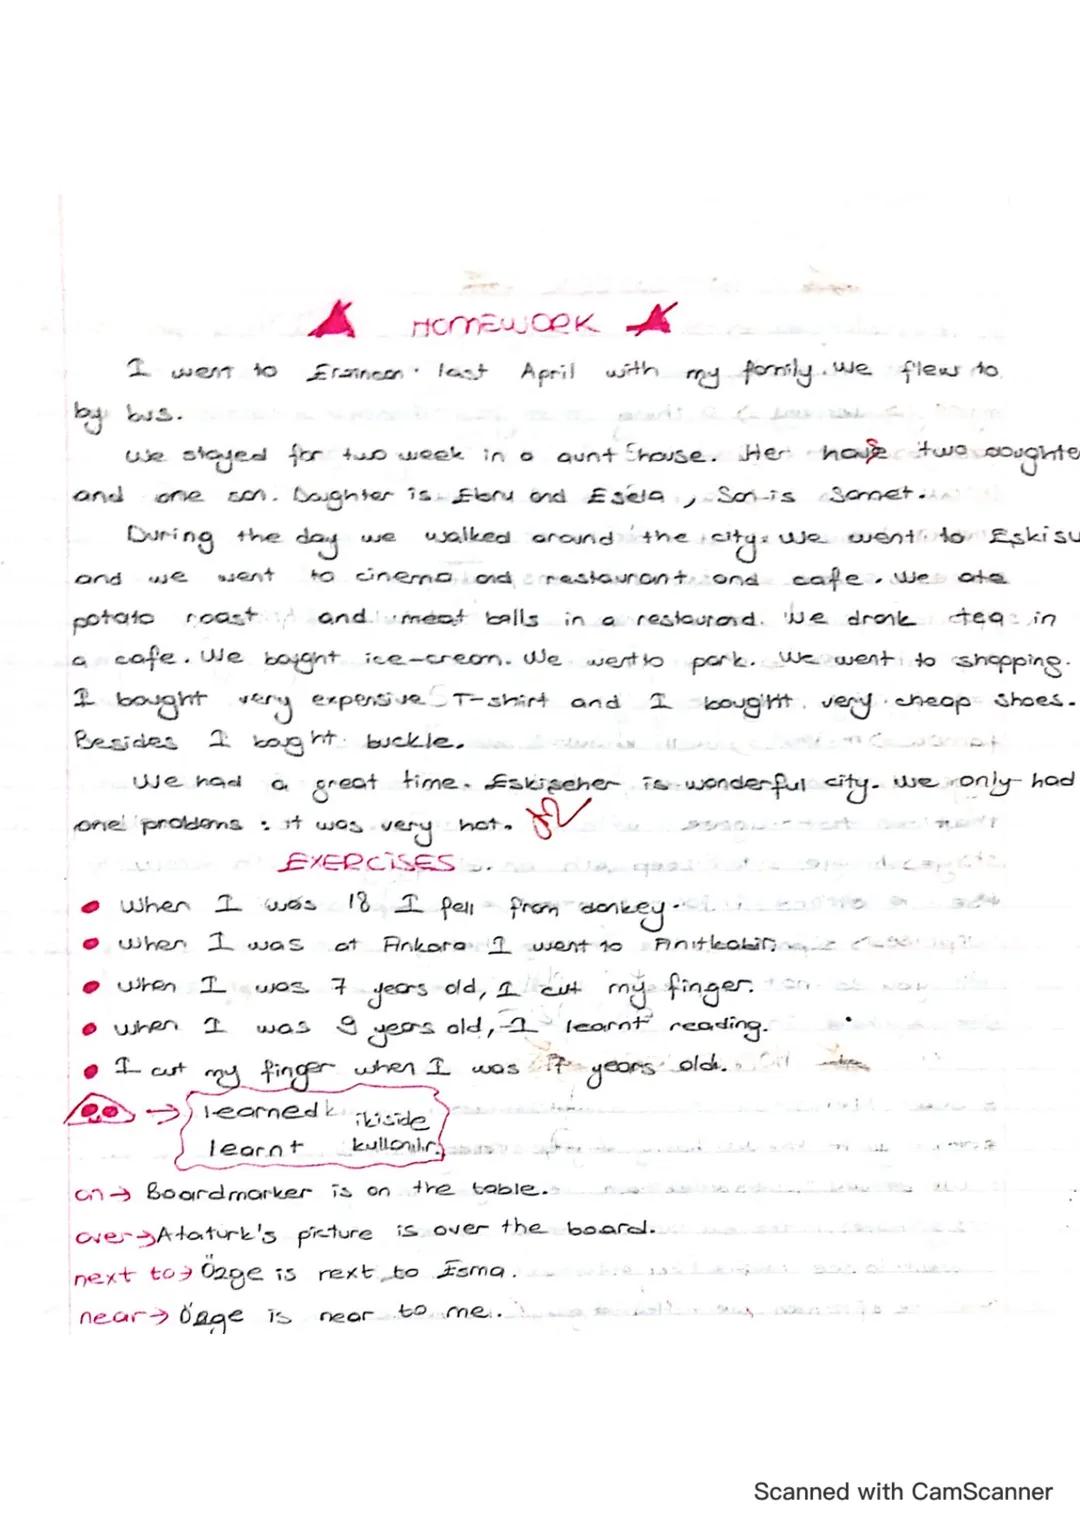 HOMEWORK
I went to Erzincan last April with my family. We flew to
by bus.
We stayed for two week in a aunt house. Her have two doughte
and one son. Doughter is Ebru and Esela, Son is Samet.
During the day we walked around the city. We went to Eskisu
and we went to cinema and restaurant and cafe. We ate
potato roast and meat balls in a restaurand. We drank tea in
a cafe. We bought ice-cream. We went to park. We went to shopping.
I bought very expensive T-shirt and I bought very cheap shoes.
Besides I bought buckle.
We had a great time. Eskişeher is wonderful city. We only had
one problems : it was very hot.
EXERCİSES
• When I was 18 I fell from donkey.
• When I was at Ankara I went to Anıtkabir.
• When I was 7 years old, I cut my finger.
• When I was 9 years old, I learnt reading.
• I cut my finger when I was 7 years old.
→ learned ikiside
learnt kullanılır.
on → Boardmarker is on the table.
over → Ataturk's picture is over the board.
next to → Özge is next to Esma.
near → Özge is near to me.
Scanned with CamScanner